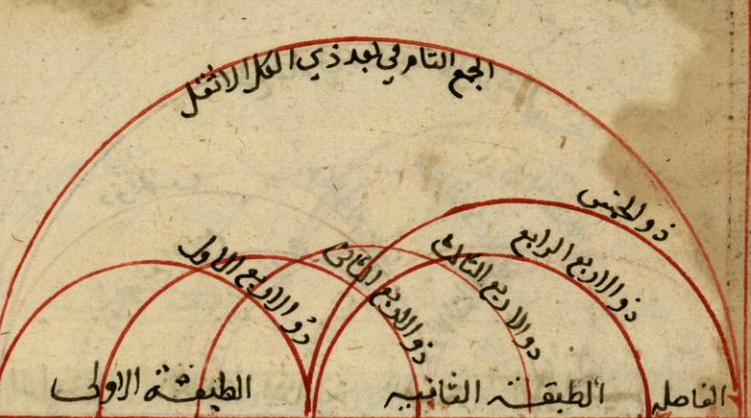 الجمع التام في بعد ذي الكل الاثقل
ذو الخمس
ذو الاربع الرابع
ذو الاربع الثالث
ذو الاربع الثاني
ذو الاربع الاول
الفاصله
الطبقة الثانيه
الطبقة الاولى